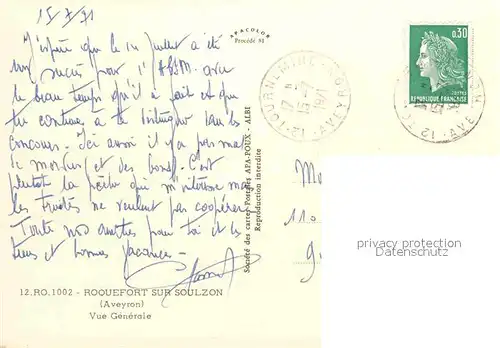 15/7/71
J'espère que le 14 Juillet a été
un succès pour l' avec
le beau temps qu'il a fait et que
tu continue à te distinguer dans les
concours. Ici aussi il y a pas mal
de et des bons. C'est
plutôt la pêche qui m'intéresse mais
les truites ne veulent pas coopérer.
Toute nos amitiés pour toi et les
tiens et bonnes vacances -
12.RO.1002 - ROQUEFORT SUR SOULZON
(Aveyron)
Vue Générale
APACOLOR
Procédé 91
Société des cartes Postales APA-POUX - ALBI
Reproduction interdite
12 TOURNEMIRE AVEYRON
17 H
15-7
1971
0,30
POSTES
REPUBLIQUE FRANÇAISE
110
privacy protection
Datenschutz